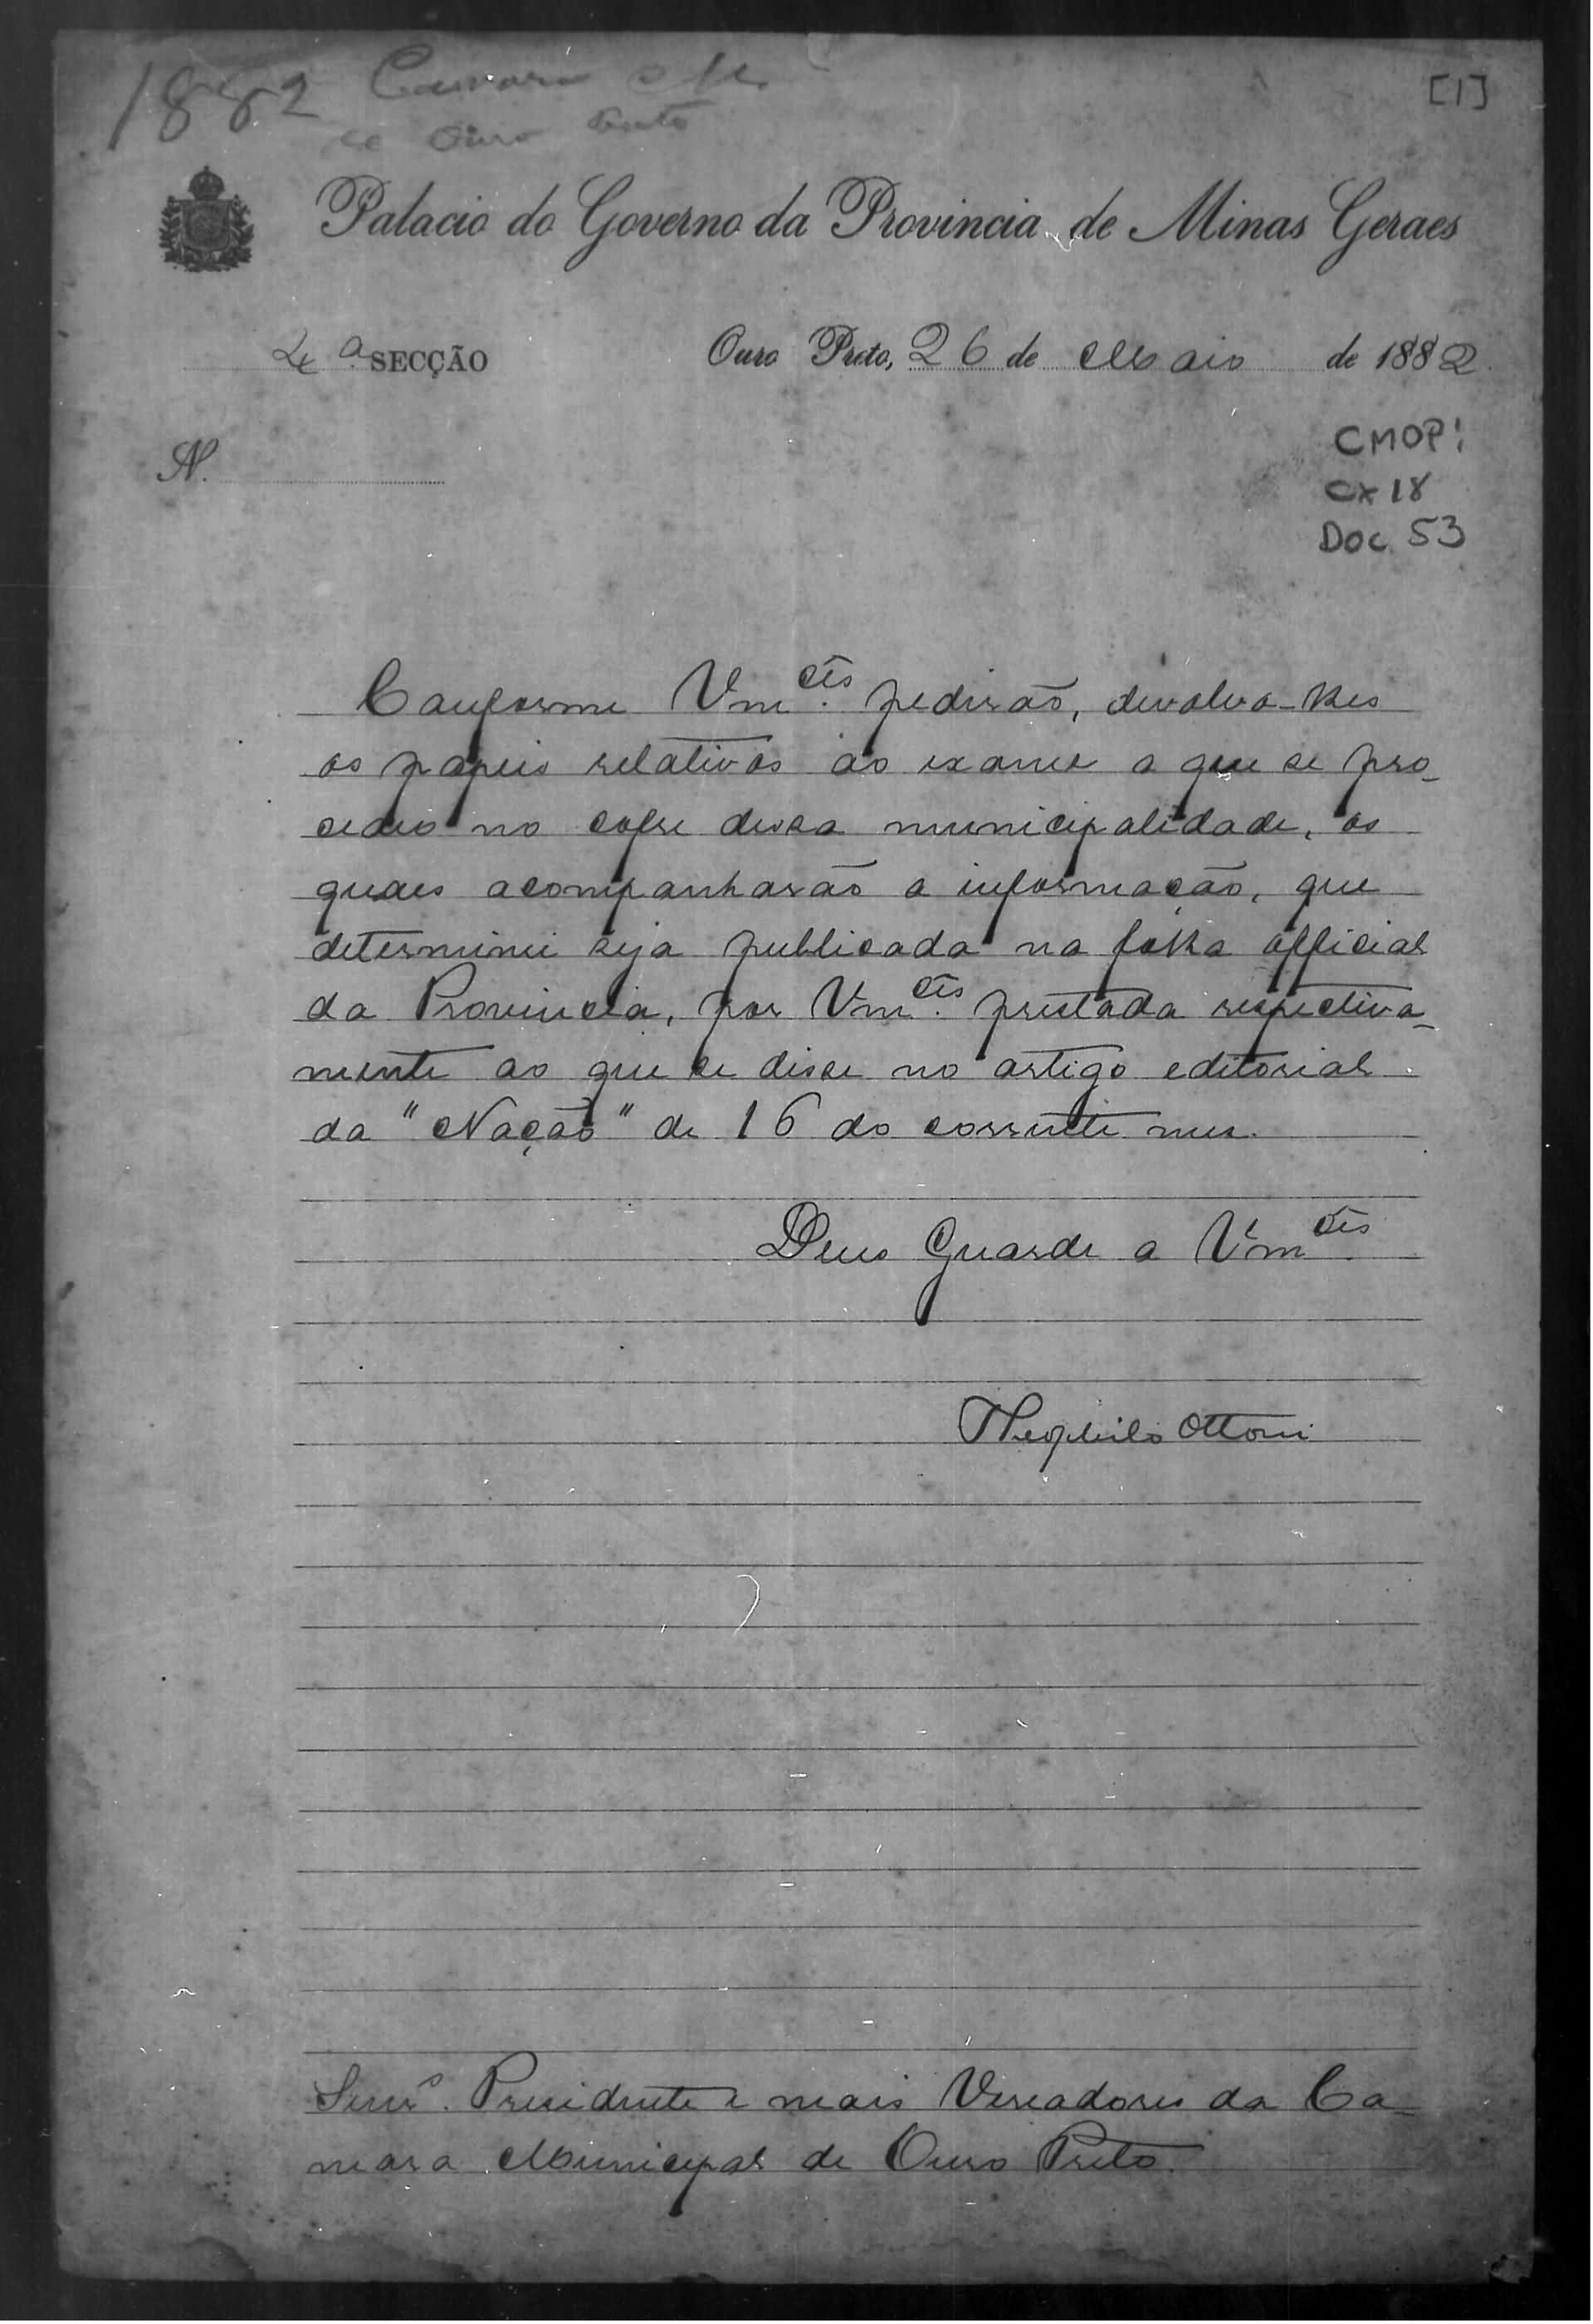 1882 Camara M.
de Ouro Preto
[1]
Palacio do Governo da Provincia de Minas Geraes
4ª SECÇÃO
Ouro Preto, 26 de Maio de 1882
N.
CMOP:
cx 18
Doc. 53
Conforme Vm.cês pedirão, devolvo-lhes
os papeis relativos ao exame a que se pro-
cedeo no cofre dessa municipalidade, os
quaes acompanharão a informação, que
determinei seja publicada na folha official
da Provincia, por Vm.cês prestada respectiva-
mente ao que se disse no artigo editorial
da "Nação" de 16 do corrente mez.
Deus Guarde a Vm.cês
Theophilo Ottoni
Senrs. Presidente e mais Vereadores da Ca-
mara Municipal de Ouro Preto.